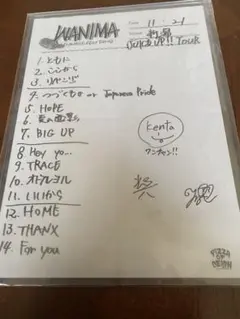 WANIMA
Date 11・21
JUICE UP!! TOUR
1. ともに
2. ここから
3. リベンジ
4. つづくもの or Japanese Pride
5. HOPE
6. 夏の面影
7. BIG UP
8. Hey yo...
9. TRACE
10. オドルヨル
11. いいから
12. HOME
13. THANX
14. For you
Kenta
ワンチャン!!